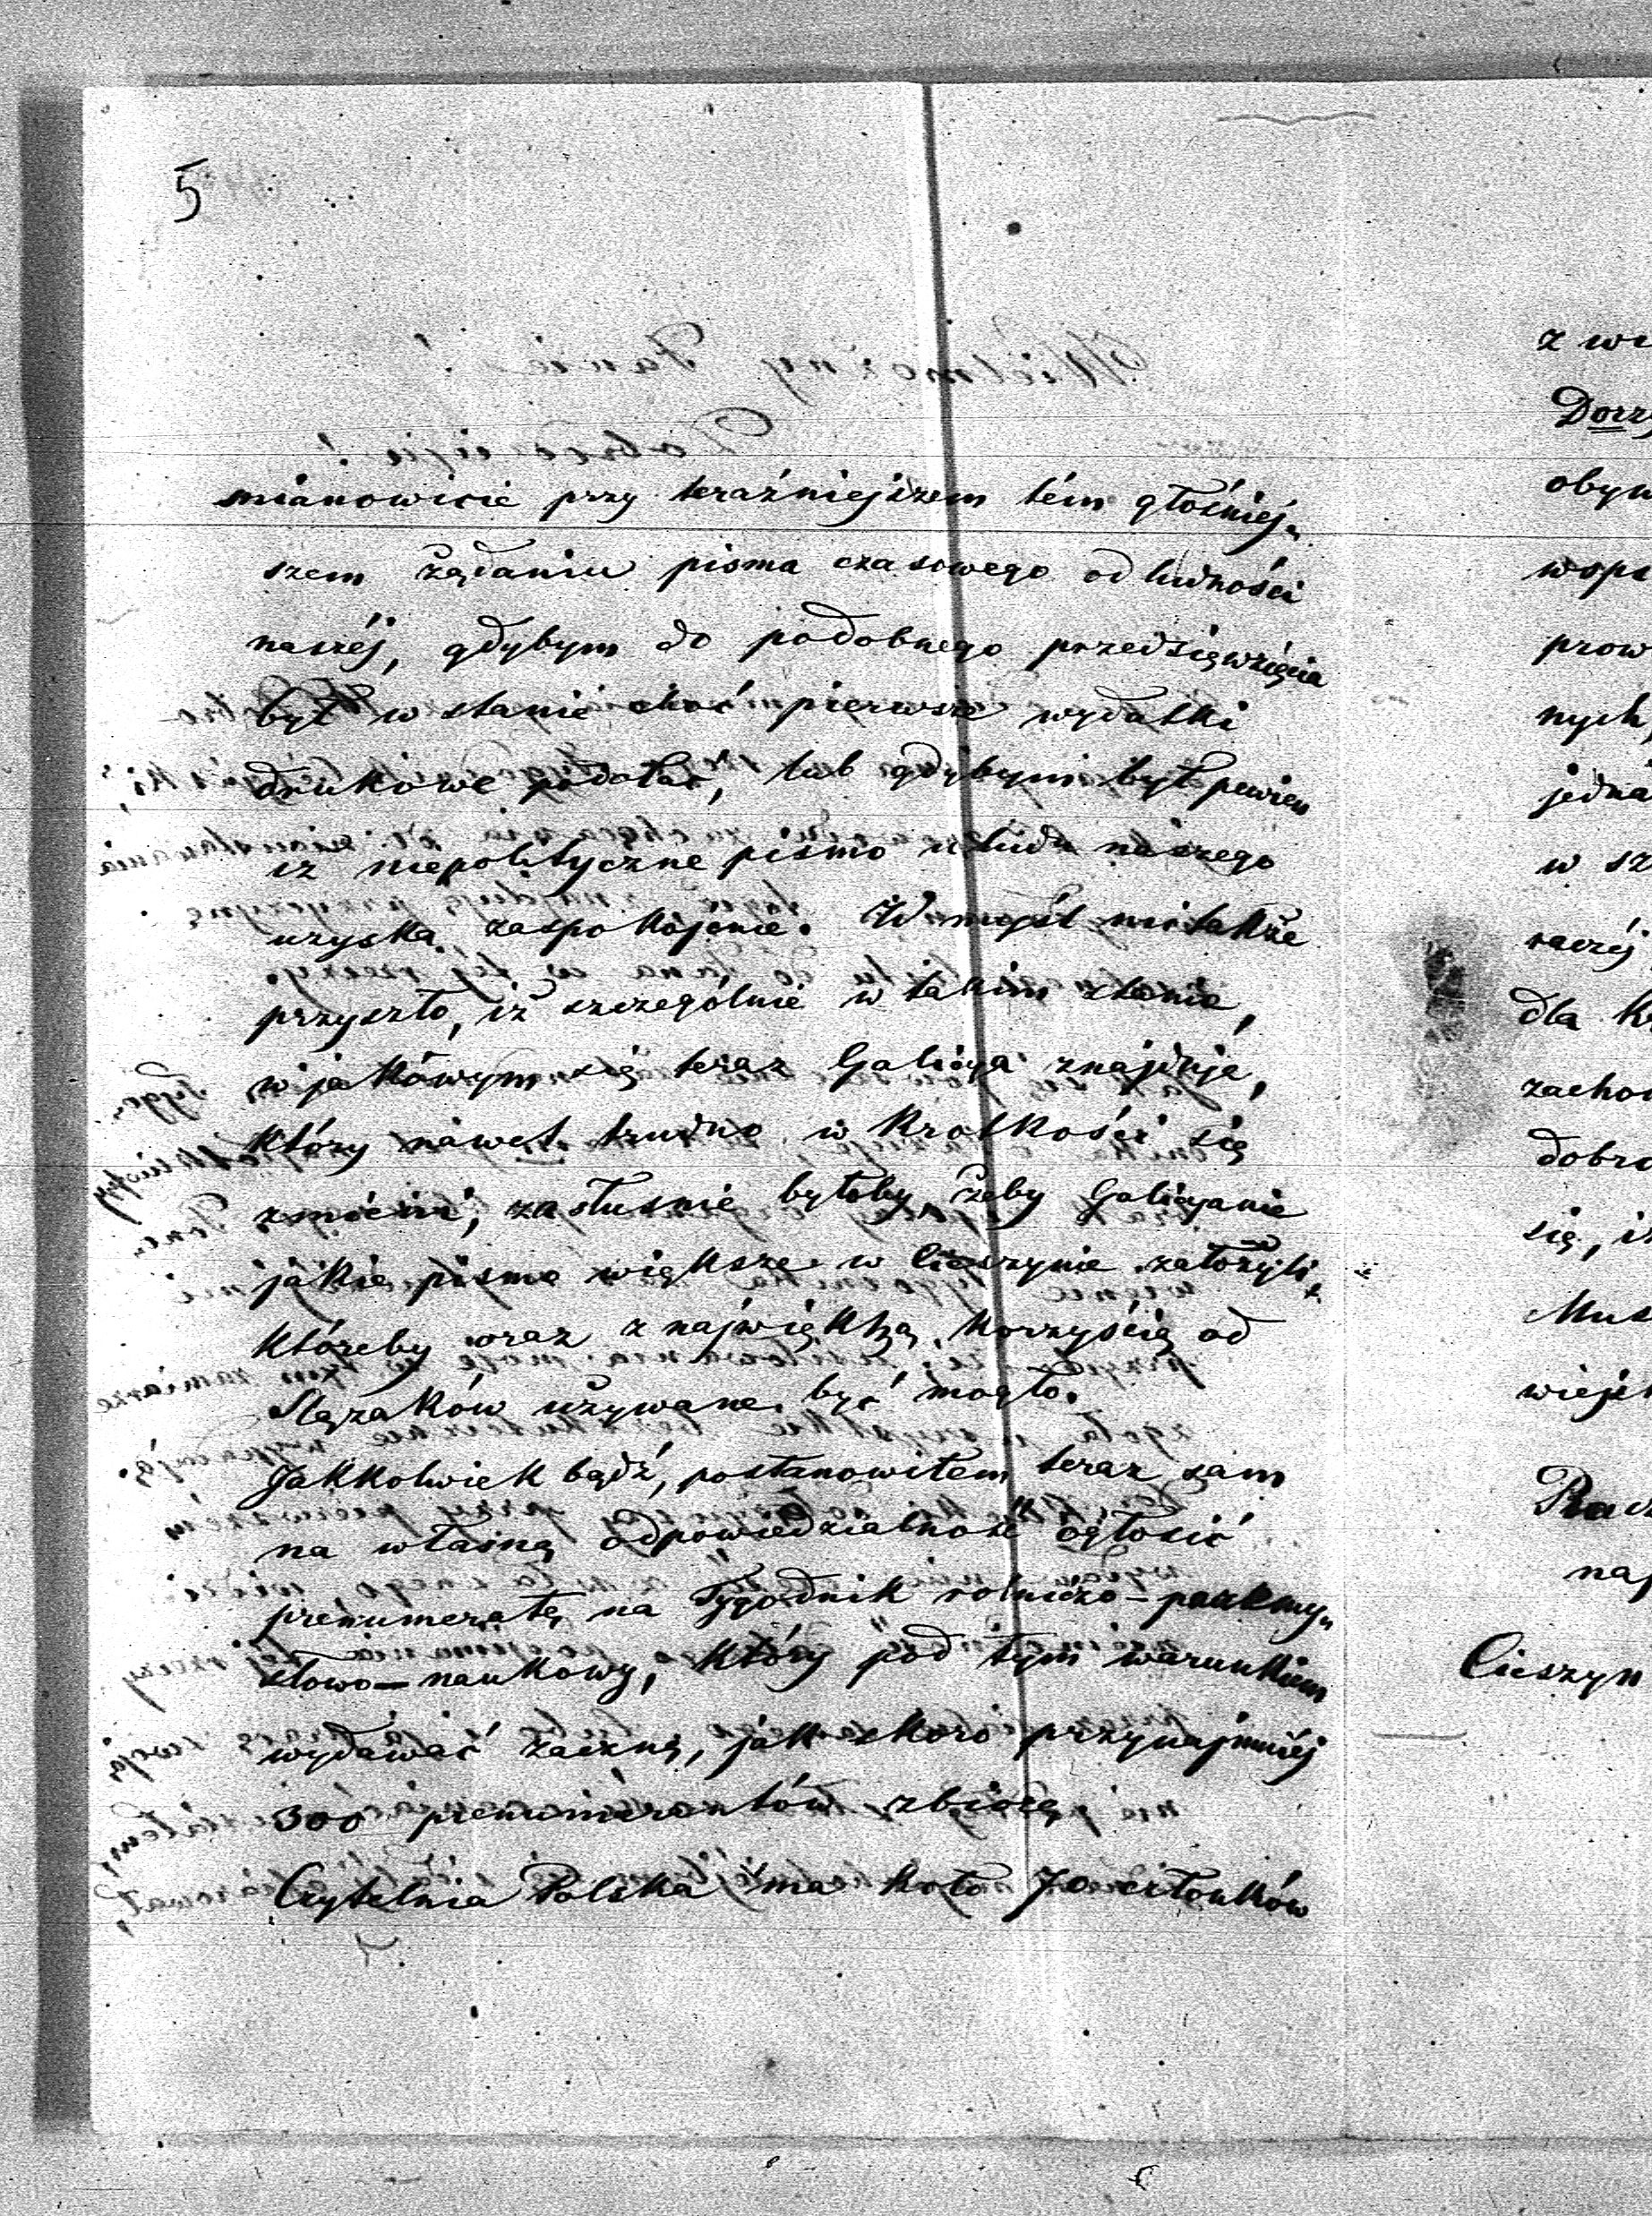 5
mianowicie przy teraźniejszem tém głośniej„
szem żądaniu pisma czasowego od ludności
naszéj, gdybym do podobnego przedsięwzięcia
był w stanie choć pierwsze wydatki
drukowe podołać, lub gdybym był pewien
iż niepolityczne pismo u ludu naszego
uzyska zaspokojenie. W myśl mi także
przyszło, iż szczególnie w takim stanie,
w jakówym się teraz Galicya znajduje,
który nawet trudno w krótkości się
zmieni, zasłusnie byłoby, żeby Galicyanie
jakie pismo większe w Cieszynie założyli,
któreby oraz z największą korzyścią od
Slązaków używane być mogło.
Jakkolwiek bądź, postanowiłem teraz sam
na własną odpowiedzialność ogłosić
prenumeratę na Tygodnik rolniczo-przemy„
słowo-naukowy, który pod tym warunkiem
wydawać zacznę, jak skoro przynajmniéj
300 prenumerantów zbiorę
Czytelnia Polska ma koło 70 członków
z wi
Dorzy
obyw
wsp
prow
nych,
jedna
w sz
raczéj
dla k
zacho
dobro
się, iż
Mus
wiejs
Rac
naj
Cieszyn